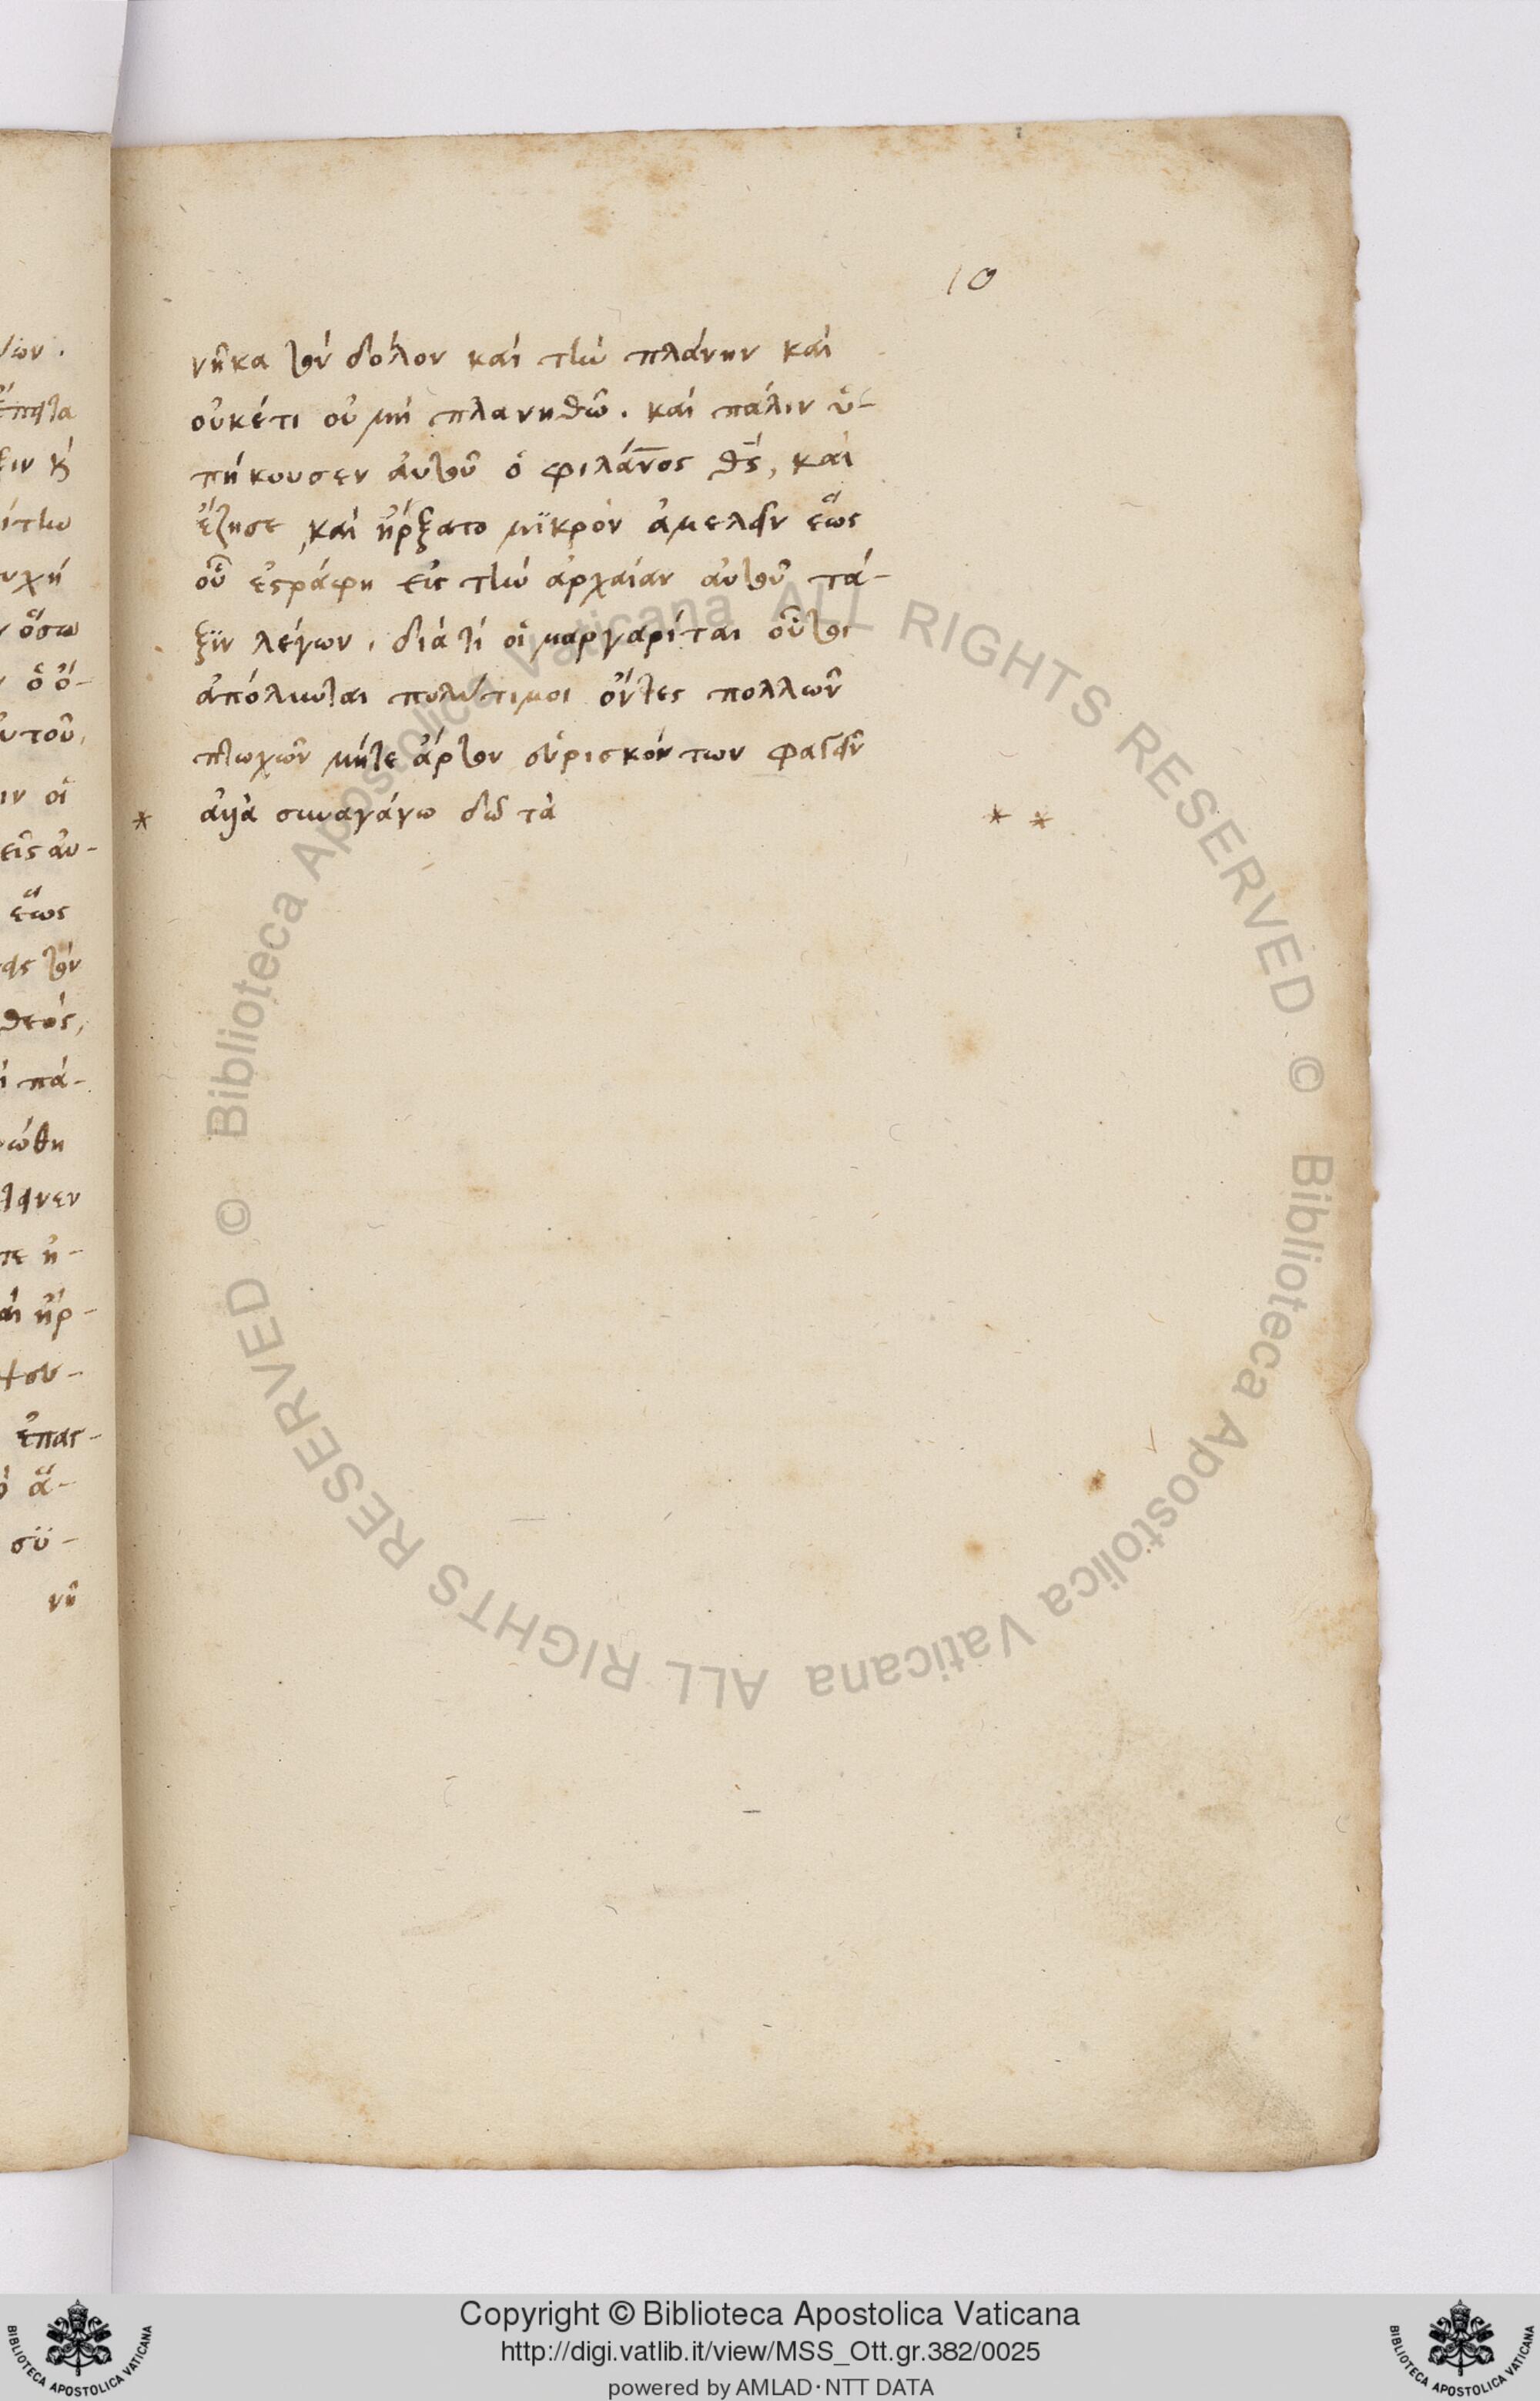 10
νῆκα τὸν δόλον καὶ τὴν πλάνην καὶ
οὐκέτι οὐ μὴ πλανηθῶ. καὶ πάλιν ὑ-
πήκουσεν αὐτοῦ ὁ φιλάνος θς, καὶ
ἔζησε, καὶ ἤρξατο μϊκρὸν ἀμελεῖν ἕως
οὗ ἐστράφη εἰς τὴν ἀρχαίαν αὐτοῦ τά-
ξϊν λέγων, διὰ τί οἱ μαργαρίται οὗτοι
ἀπόλωνται πολύτιμοι ὄντες πολλῶν
πτωχῶν μήτε ἄρτον εὑρισκόντων φαγεῖν
* συναγάγω δῶ τὰ * *
νων.
ἔπειτα
ὅσω
αὐτοῦ,
οἱ
εἰς αὐ-
ἕως
τὸν
θεός,
πά-
ἤρ-
ἐπαι-
ἅ-
σϋ-
νῆ
Copyright © Biblioteca Apostolica Vaticana
http://digi.vatlib.it/view/MSS_Ott.gr.382/0025
powered by AMLAD·NTT DATA
BIBLIOTECA APOSTOLICA VATICANA
BIBLIOTECA APOSTOLICA VATICANA
© Biblioteca Apostolica Vaticana ALL RIGHTS RESERVED © Biblioteca Apostolica Vaticana ALL RIGHTS RESERVED